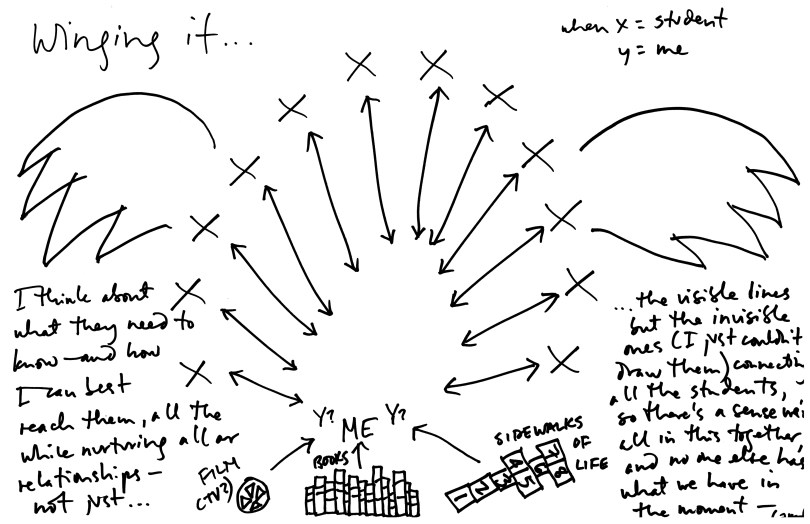 Winging it...
when x = student
y = me
X
X
X
X
X
X
X
X
X
X
X
X
I think about
what they need to
know—and how
I can best
reach them, all the
while nurturing all our
relationships—
not just...
...the visible lines
but the invisible
ones (I just couldn't
draw them)
all the students,
so there's a sense
all in this together,
and no one else has
what we have in
the moment—
Y? ME Y?
FILM
(TV?)
BOOKS
SIDEWALKS
OF
LIFE
1 2 3 4 5 6 7 8